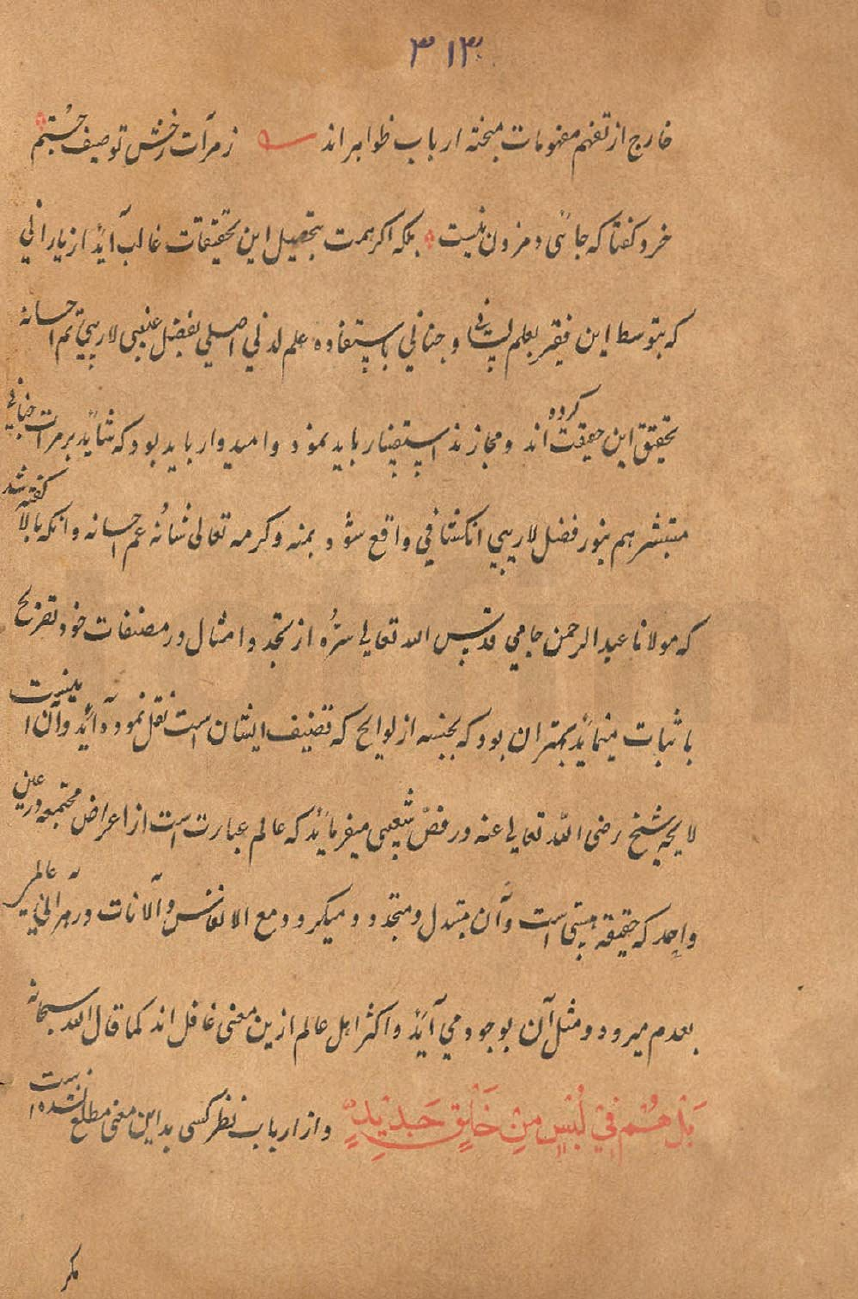 ۳۱۳
خارج از تفهم مفهومات مبحثه ارباب ظواهر اند ز مرآت رخش توصیف جستم
خرد گفتا که جائی دم زدن نیست بلکه اکر همت بتحصیل این تحقیقات غالب آید از یارانی
که بتوسط این فقیر بعلم لسانی و جنانی باستفاده علم لدنی اصلی بفضل غیبی لاریبی تم احسانه
تحقیق این حقیقت کرده اند و مجازند استفسار باید نمود و امیدوار باید بود که شاید بر مرآت جنانی
مستبشر هم بنور فضل لاریبی انکشافی واقع شود بمنه و کرمه تعالی شانه عم احسانه و انکه بالا کفته شد
که مولانا عبد الرحمن جامی قدس الله تعالی سره از تجدد امثال در مصنفات خود تصریح
باثبات مینماید بهتر ان بود که بجنسه از لوایح که تصنیف ایشان است نقل نموده آید و آن اینست
لایحه شیخ رضی الله تعالی عنه در فص شعیبی میفرماید که عالم عبارت است از اعراض مجتمعه در عین
واحد که حقیقه هستی است و آن متبدل و متجدد میکردد مع الانفاس و الآنات در هر آنی عالمی
بعدم میرود و مثل آن بوجود می آید و اکثر اهل عالم ازین معنی غافل اند کما قال الله سبحانه
بَلْ هُمْ فِي لُبْسٍ مِنْ خَلْقٍ جَدِيدٍ و از ارباب نظر کسی بداین معنی مطلع نشده است
مکر